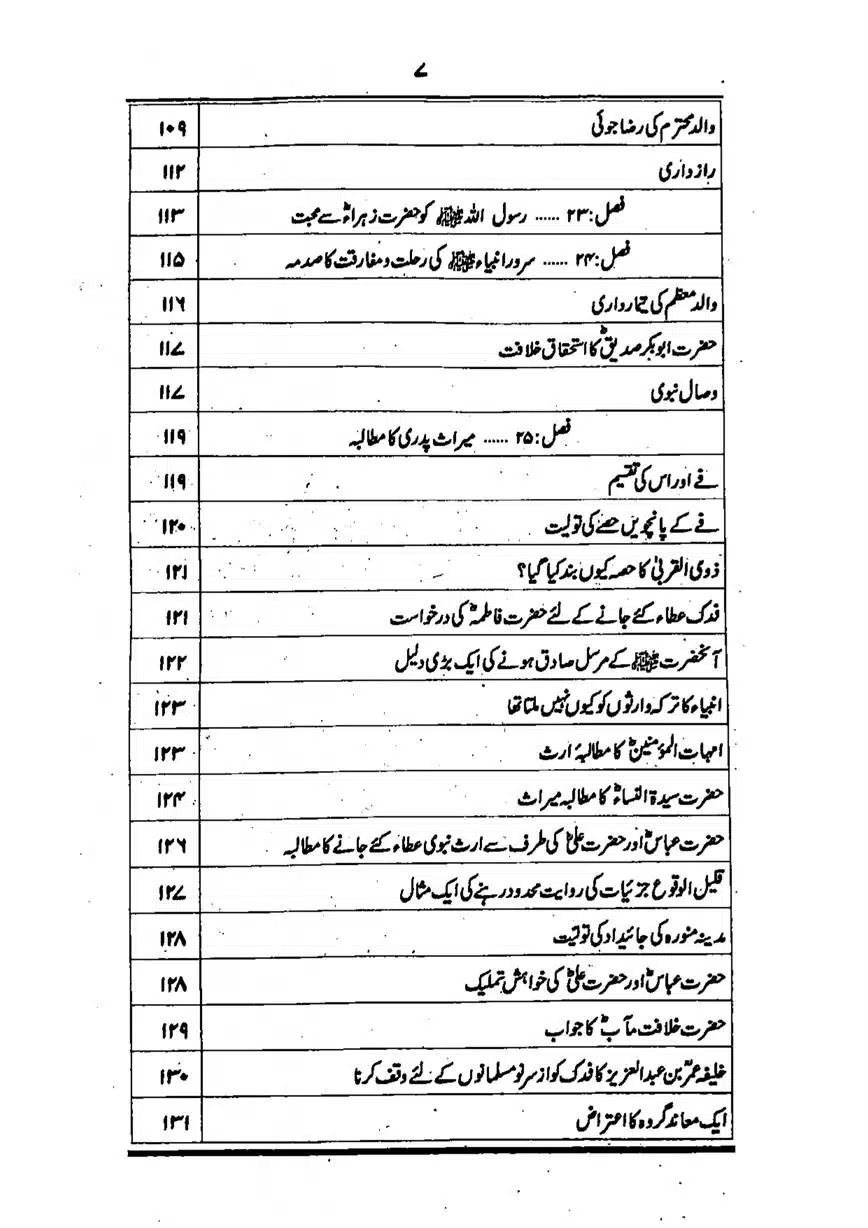 ۷
والد محترم کی رضا جوئی ۱۰۹
رازداری ۱۱۲
فصل: ۲۳ ...... رسول اللہ ﷺ کو حضرت زہراءؓ سے محبت ۱۱۳
فصل: ۲۴ ...... سرور انبیاء ﷺ کی رحلت و مفارقت کا صدمہ ۱۱۵
والد معظم کی تیمارداری ۱۱۶
حضرت ابوبکر صدیقؓ کا استحقاق خلافت ۱۱۷
وصال نبوی ۱۱۷
فصل: ۲۵ ...... میراث پدری کا مطالبہ ۱۱۹
فے اور اس کی تقسیم ۱۱۹
فے کے پانچویں حصے کی تولیت ۱۲۰
ذوی القربیٰ کا حصہ کیوں بند کیا گیا؟ ۱۲۱
فدک عطاء کئے جانے کے لئے حضرت فاطمہؓ کی درخواست ۱۲۱
آنحضرت ﷺ کے مرسل صادق ہونے کی ایک بڑی دلیل ۱۲۲
انبیاء کا ترکہ وارثوں کو کیوں نہیں ملتا تھا ۱۲۳
امہات المؤمنینؓ کا مطالبۂ ارث ۱۲۳
حضرت سیدۃ النساءؓ کا مطالبہ میراث ۱۲۴
حضرت عباسؓ اور حضرت علیؓ کی طرف سے ارث نبوی عطاء کئے جانے کا مطالبہ ۱۲۶
قلیل الوقوع جزئیات کی روایت محدود رہنے کی ایک مثال ۱۲۷
مدینہ منورہ کی جائیداد کی تولیت ۱۲۸
حضرت عباسؓ اور حضرت علیؓ کی خواہش تملیک ۱۲۸
حضرت خلافت مآبؓ کا جواب ۱۲۹
خلیفہ عمرؒ بن عبدالعزیز کا فدک کو از سر نو مسلمانوں کے لئے وقف کرنا ۱۳۰
ایک معاند گروہ کا اعتراض ۱۳۱